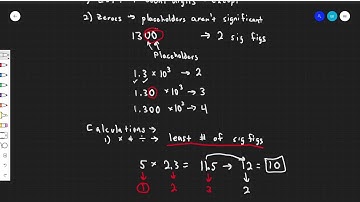 2) Zeroes → placeholders aren't significant
1300 → 2 sig figs
Placeholders
1.3 × 10³ → 2
1.30 × 10³ → 3
1.300 × 10³ → 4
Calculations →
1) × & ÷ → least # of sig figs
5 × 2.3 = 11.5 → 12 = 10
1 2 2 2